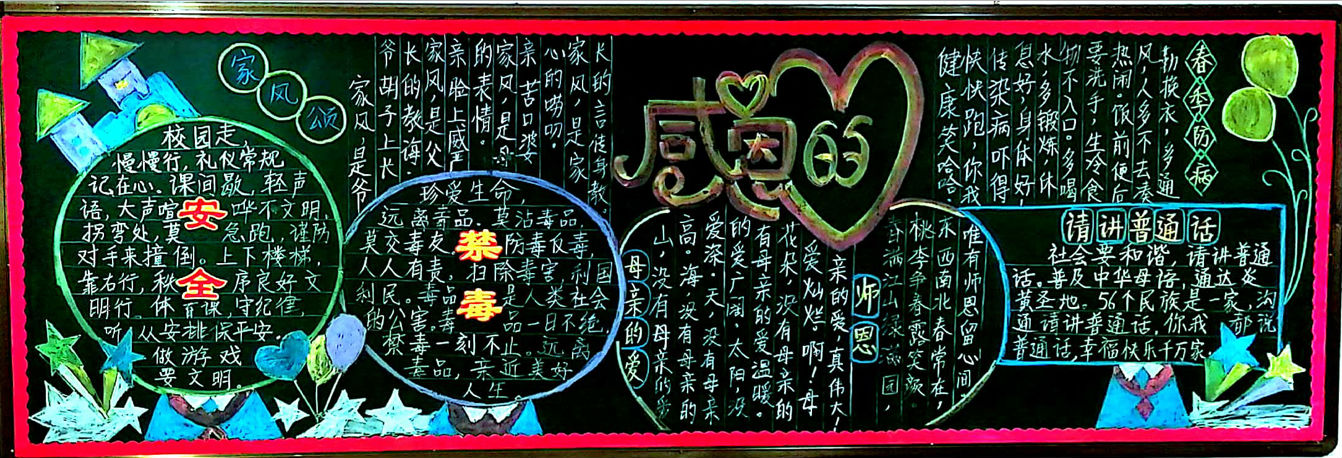 家风颂
校园走,
慢慢行,礼仪常规
记在心。课间歇,轻声
语,大声喧 哗不文明,
拐弯处,莫 急跑,谨防
对手来撞倒。上下楼梯,
靠右行,秩 序良好文
明行。体育课,守纪律,
听从安排保平安
做游戏
要文明。
安
全
家风,是爷
爷胡子上长
长的教诲。
家风,是父
亲脸上威
的表情。
家风,是母
亲苦口婆
心的唠叨。
家风,是家
长的言传身教。
珍爱生命,
远离毒品。莫沾毒品
莫交毒友 防毒反毒
人人有责,扫除毒害,利国
利民。毒品是人类社会
的公害,毒品一日不绝
禁毒一刻不止。远离
毒品,亲近美好
人生
禁
毒
感恩
母亲的爱
山,没有母亲的爱
高。海,没有母亲的
爱深。天,没有母亲
的爱广阔,太阳,没
有母亲的爱温暖。
花朵,没有母亲的
爱灿烂。啊!母
亲的爱,真伟大!
师恩
春满江山绿满园,
桃李争春露笑颜。
东西南北春常在,
唯有师恩留心间。
春季防病
勤换衣,多通
风,人多不去凑
热闹,饭前便后
要洗手,生冷食
物不入口。多喝
水,多锻炼,休
息好,身体好,
传染病吓得
快快跑,你我
健康笑哈哈
请讲普通话
社会要和谐,请讲普通
话。普及中华母语,通达炎
黄圣地。56个民族是一家,沟
通请讲普通话,你我 都说
普通话,幸福快乐千万家